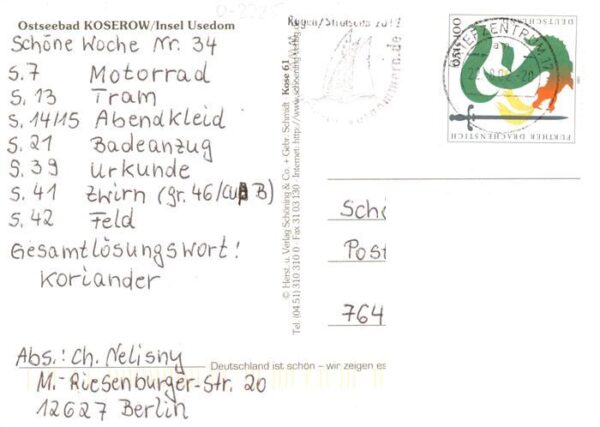 0-2225
Ostseebad KOSEROW/Insel Usedom
Schöne Woche Nr. 34
S. 7 Motorrad
S. 13 Tram
S. 14/15 Abendkleid
S. 21 Badeanzug
S. 39 Urkunde
S. 41 Zwirn (gr. 46/CUP B)
S. 42 Feld
Gesamtlösungswort!
Koriander
Abs.: Ch. Nelisny
M.-Riesenburger-Str. 20
12627 Berlin
© Herst. u. Verlag Schöning & Co. + Gebr. Schmidt Kose 61
Tel. (04 51) 310 310 0 · Fax 31 03 130 · Internet: http://www.schoening-verlag.de
Rügen/Stralsund
BRIEFZENTRUM 17
DEUTSCHLAND
FURTHER DRACHENSTICH
Schö
Post
764
Deutschland ist schön – wir zeigen es